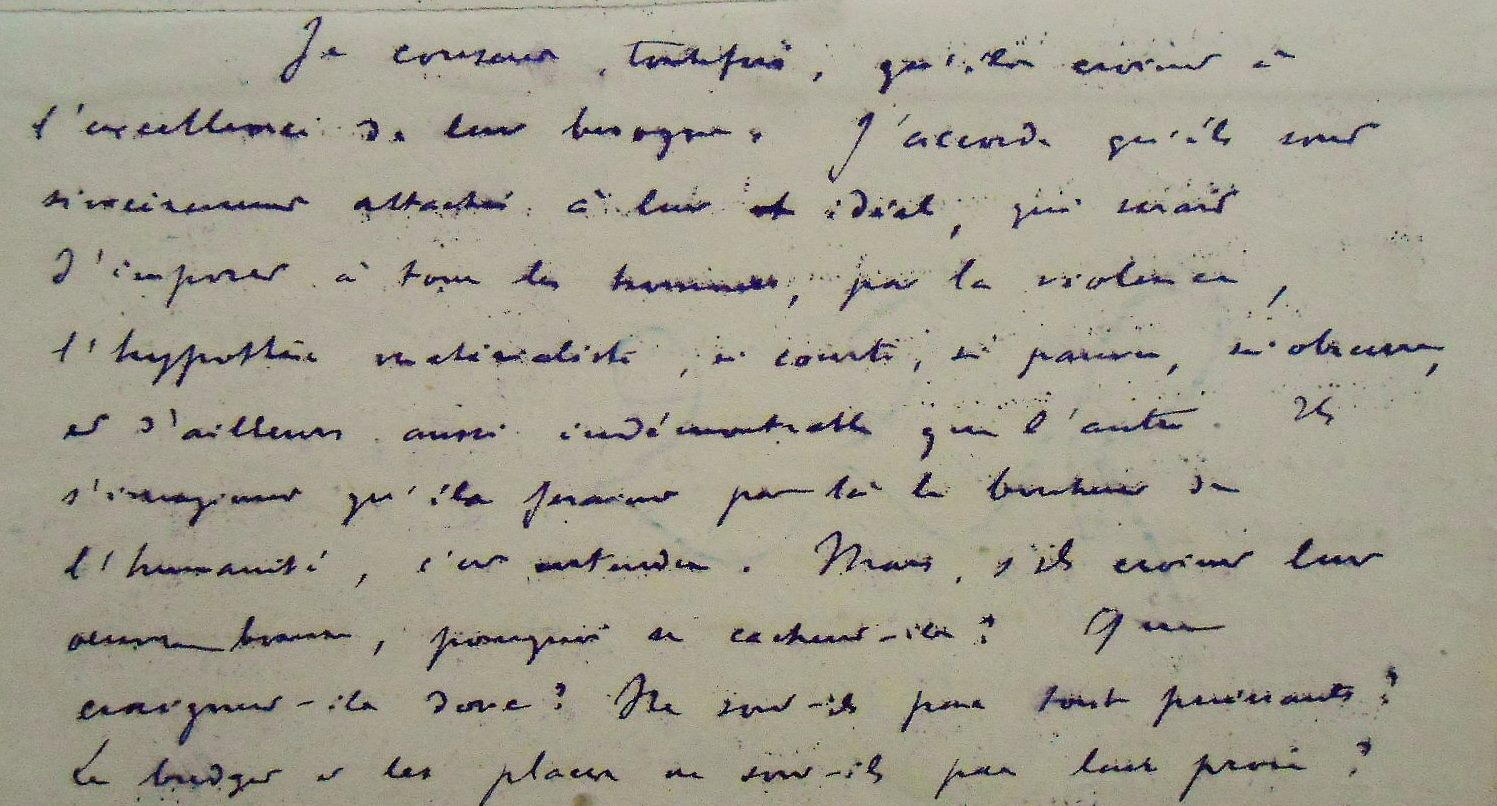 Je conçois, toutefois, qu'ils croient à
l'excellence de leur besogne. J'accorde qu'ils sont
sincèrement attachés à leur idéal, qui serait
d'imposer à tous les hommes, par la violence,
l'hypothèse matérialiste, si courte, si pauvre, si obscure,
et d'ailleurs aussi indémontrable que l'autre. Ils
s'imaginent qu'ils feraient par là le bonheur de
l'humanité, c'est entendu. Mais, s'ils croient leur
œuvre bonne, pourquoi se cachent-ils ? Que
craignent-ils donc ? Ne sont-ils pas tout puissants ?
Le budget et les places ne sont-ils pas leur proie ?